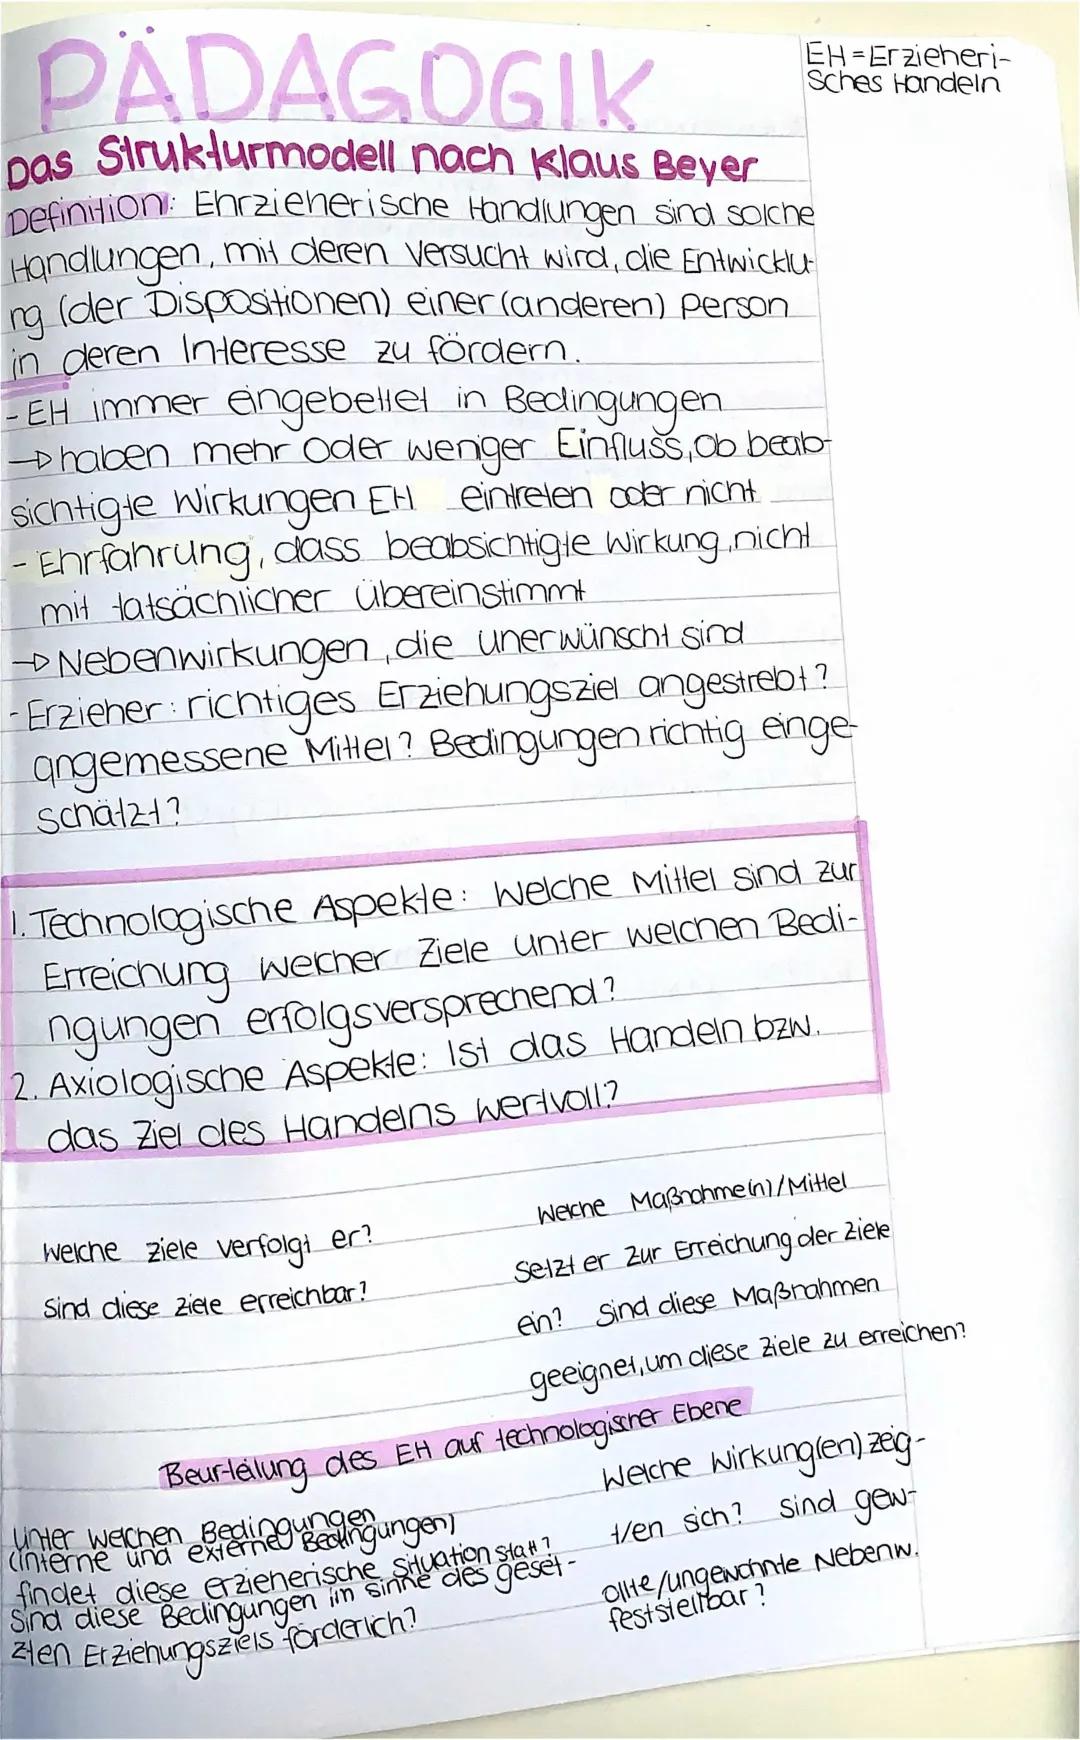 PÄDAGOGIK
EH=Erzieheri-
sches Handeln
Das Strukturmodell nach Klaus Beyer
Definition: Ehrzieherische Handlungen sind solche
Handlungen, mit deren Versucht wird, die Entwicklu-
ng (der Dispositionen) einer (anderen) Person
in deren Interesse zu fördern.
- EH immer eingebettet in Bedingungen
→ haben mehr oder weniger Einfluss, ob beab-
sichtigte Wirkungen EH eintreten oder nicht
- Ehrfahrung, dass beabsichtigte Wirkung, nicht
mit tatsächlicher übereinstimmt
→ Nebenwirkungen, die unerwünscht sind
- Erzieher: richtiges Erziehungsziel angestrebt?
angemessene Mittel? Bedingungen richtig einge-
schätzt?
1. Technologische Aspekte: Welche Mittel sind zur
Erreichung welcher Ziele unter welchen Bedi-
ngungen erfolgsversprechend?
2. Axiologische Aspekte: Ist das Handeln bzw.
das Ziel des Handelns wertvoll?
Welche Ziele verfolgt er?
Sind diese Ziele erreichbar?
Welche Maßnahme(n)/Mittel
setzt er zur Erreichung der Ziele
ein? Sind diese Maßnahmen
geeignet, um diese Ziele zu erreichen?
Beurteilung des EH auf technologischer Ebene
Unter welchen Bedingungen
(interne und externe Bedingungen)
findet diese erzieherische Situation statt?
Sind diese Bedingungen im Sinne des geset-
zten Erziehungsziels förderlich?
Welche Wirkung(en) zeig-
t/en sich? Sind gew-
ollte/ungewohnte Nebenw.
feststellbar?